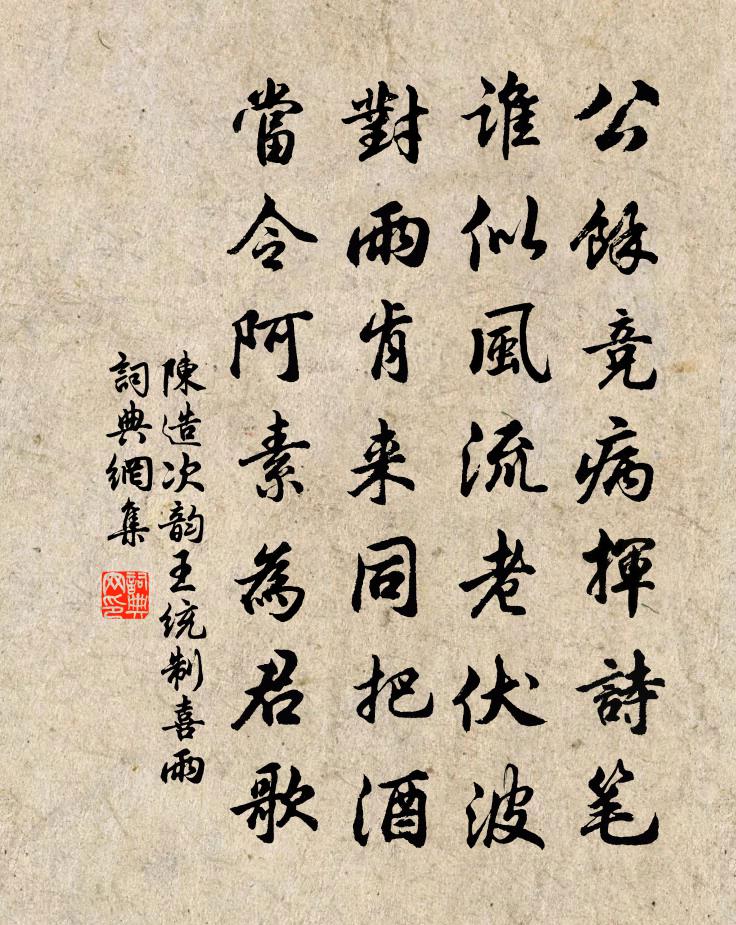 公餘竞病揮詩笔
谁似風流老伏波
對雨肯来同把酒
當令阿素為君歌
陳造次韵王统制喜雨
詞典網集
詞典网印